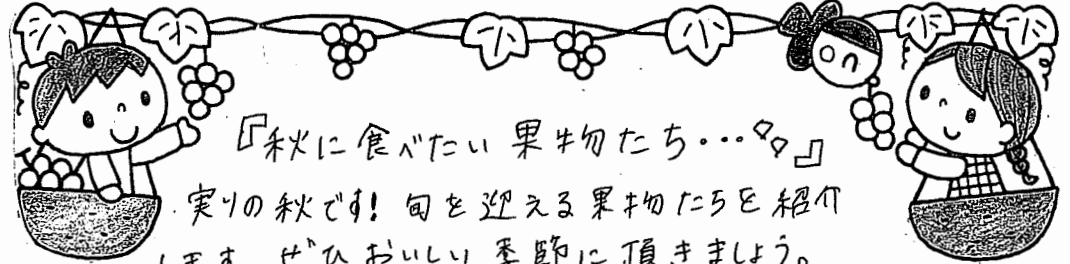 『秋に食べたい果物たち・・・』
実りの秋です！旬を迎える果物たちを紹介
します。ぜひおいしい季節に頂きましょう。